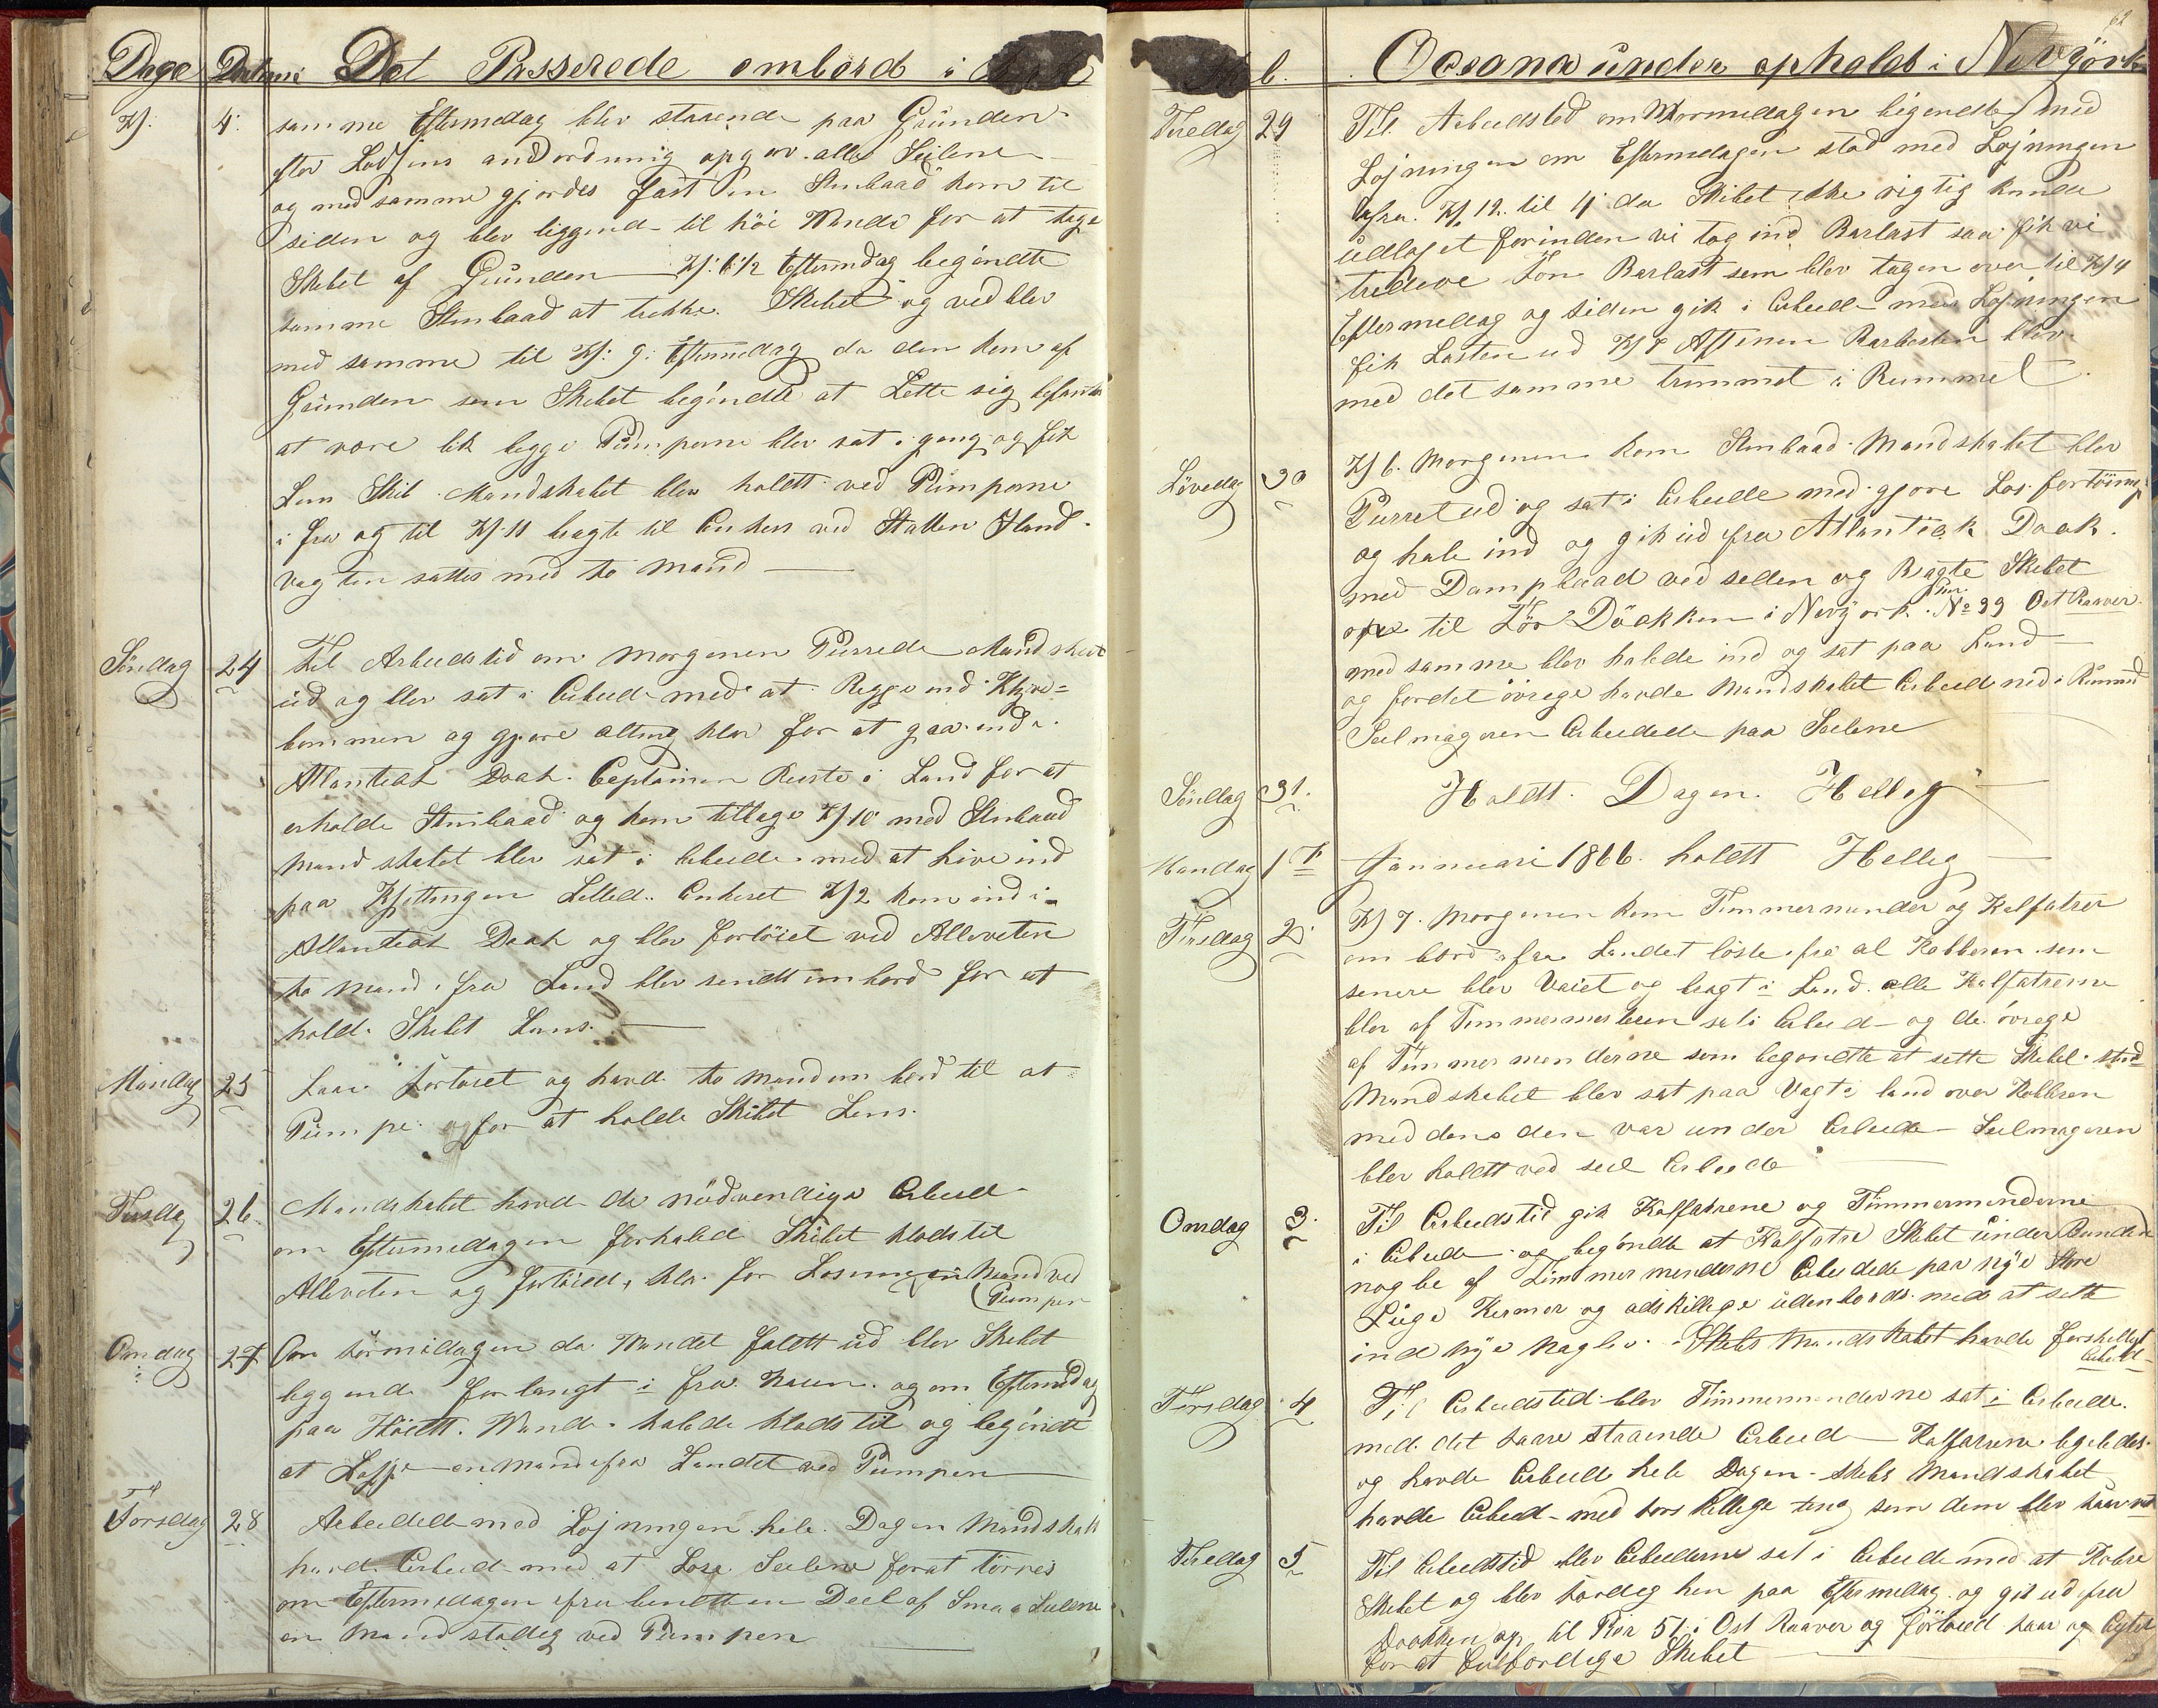 Dage Datum Det Passerede ombord i
Kl: 4: samme Eftermedag blev staaende paa Grunden
efter Lodsens andordning opgav alle Seilene
og med samme gjordes fast en Stmbaad kom til
siden og blev liggende til höi Vande for at tage
Skibet af Grunden Kl: 6 1/2 Eftermdag begöndte
samme Stmbaad at trekke Skibet og ved blev
med samme til Kl: 9: Eftermedag da den kom af
Grunden som Skibet begöndte at Lette sig
at vore lek begge Pumperne blev sat i gang og fik
Lens Skib Mandskabet blev holdt ved Pumperne
i fra og til Kl 11 bragte til Ankers ved Statten Iland
vagten sattes med to Mand
Söndag 24 Til Arbeidstid om Morgenen Purrede Mandskabet
ud og blev sat i Arbeide med at Rigge ind Klyve=
bommen og gjore alting klar for at gaa ind i
Atlantick Doak Captainen Reiste i Land for at
erholde Stmbaad og kom tilbage Kl 10 med Stmbaad
Mandskabet blev sat i Arbeide med at hive ind
paa Kjettingen Lettede Ankeret Kl 2 kom ind i
Atlantick Doak og blev fortöiet ved Alleveten
to Mand fra Land blev sendt ombord for at
holde Skibet Lens
Mandag 25 Laae fortöiet og havde to Mand om bord til at
Pumpe og for at holde Skibet Lens
Tirsdag 26. Mandskabet havde de nödvendige Arbeid
om Eftermedagen forhalede Skibet klods til
Alleveten og fortöied, klar for Losning en Mand ved
Pumpen
Onsdag 27 Om Formidagen da Vandet faldt ud blev Skibet
liggende for langt i fra Kaien og om Eftermedag
paa Höidt Vande halede klods til og begöndte
at Losse en Mand fra Landet ved Pumpen
Torsdag 28 Arbeidede med Losningen hele Dagen Mandskabet
havde Arbeid med at Lose Seilene forat törres
om Eftermedagen fra bendte en Deel af Smaa Seilene
en Mand stadig ved Pumpen
62
Oceana under opholdt i Nevyörk
Fredag 29 Til Arbeidstid om Formedagen begendte med
Losningen om Eftermedagen stod med Losningen
ifra Kl 12 til 4 da Skibet ikke rigtig kunde
udlosset forinden vi tog ind Barlast saa fik vi
tredeve Ton Barlast som blev tagen over til Kl 4
Eftermedag og siden gik i Arbeide med Losningen
fik Lasten ud Kl 8 Aftenen Barlasten blev
med det samme trimmet i Rummet
Lövedag 30 Kl 6. Morgenen kom Stmbaad Mandskabet blev
Purret ud og sat i Arbeide med gjore Los fortöining
og hale ind og gik ud fra Atlantick Doak
med Dampbaad ved seden og Bragte Skibet
op til Tör Dökken i Nevyork Pier No 39 Ost Raaver
med samme blev halede ind og sat paa Land
og fordet övrege havde Mandskabet Arbeid ned i Rummed
Seilmageren Arbeidede paa Seilene
Söndag 31. Holdt Dagen Hellog
Mandag 1st Jannuari 1866. holdt Helleg
Tirsdag 2. Kl 7. Morgenen kom Timmermender og Kalfatrer
om bord fra Landet löste fra al Kobberen som
senere blev Vaiet og bragt i Land. alle Kalfatrerne
blev af Timmermesteren sat i Arbeid og de övrege
af Timmermenderne som begöndte at sette Skibet stöd
Mandskabet blev sat paa Vagt i land over Kobberen
meddens den var under Arbeide Seilmageren
blev holdt ved seil Arbeide
Onsdag 3. Til Arbeidstid gik Kalfatrene og Timmermenderne
i Arbeide og begöndte at Kalfatre Skibet under Bunden
nogle af Timmermenderne Arbeidede paa nye store
Luge Karmer og adskillige udenbords med at sette
ind nye nagler Skibs Mandskabet havde forskelligt
Arbeide
Torsdag 4 Til Arbeidstid blev Timmermenderne sat i Arbeide
med det faare staaende Arbeid Kalfatrerne legeledes
og havde Arbeid hele Dagen Skibs Mandskabet
havde Arbeid med forskellige ting som dem blev
Fredag 5 Til Arbeidstid blev Arbeiderne sat i Arbeide med at Kobre
Skibet og blev færdeg hen paa Eftermedag og gik ud fra
Doakken op til Pier 51 i Ost Raaver og förtöied faar og Agter
for at fuldfordige Skibet